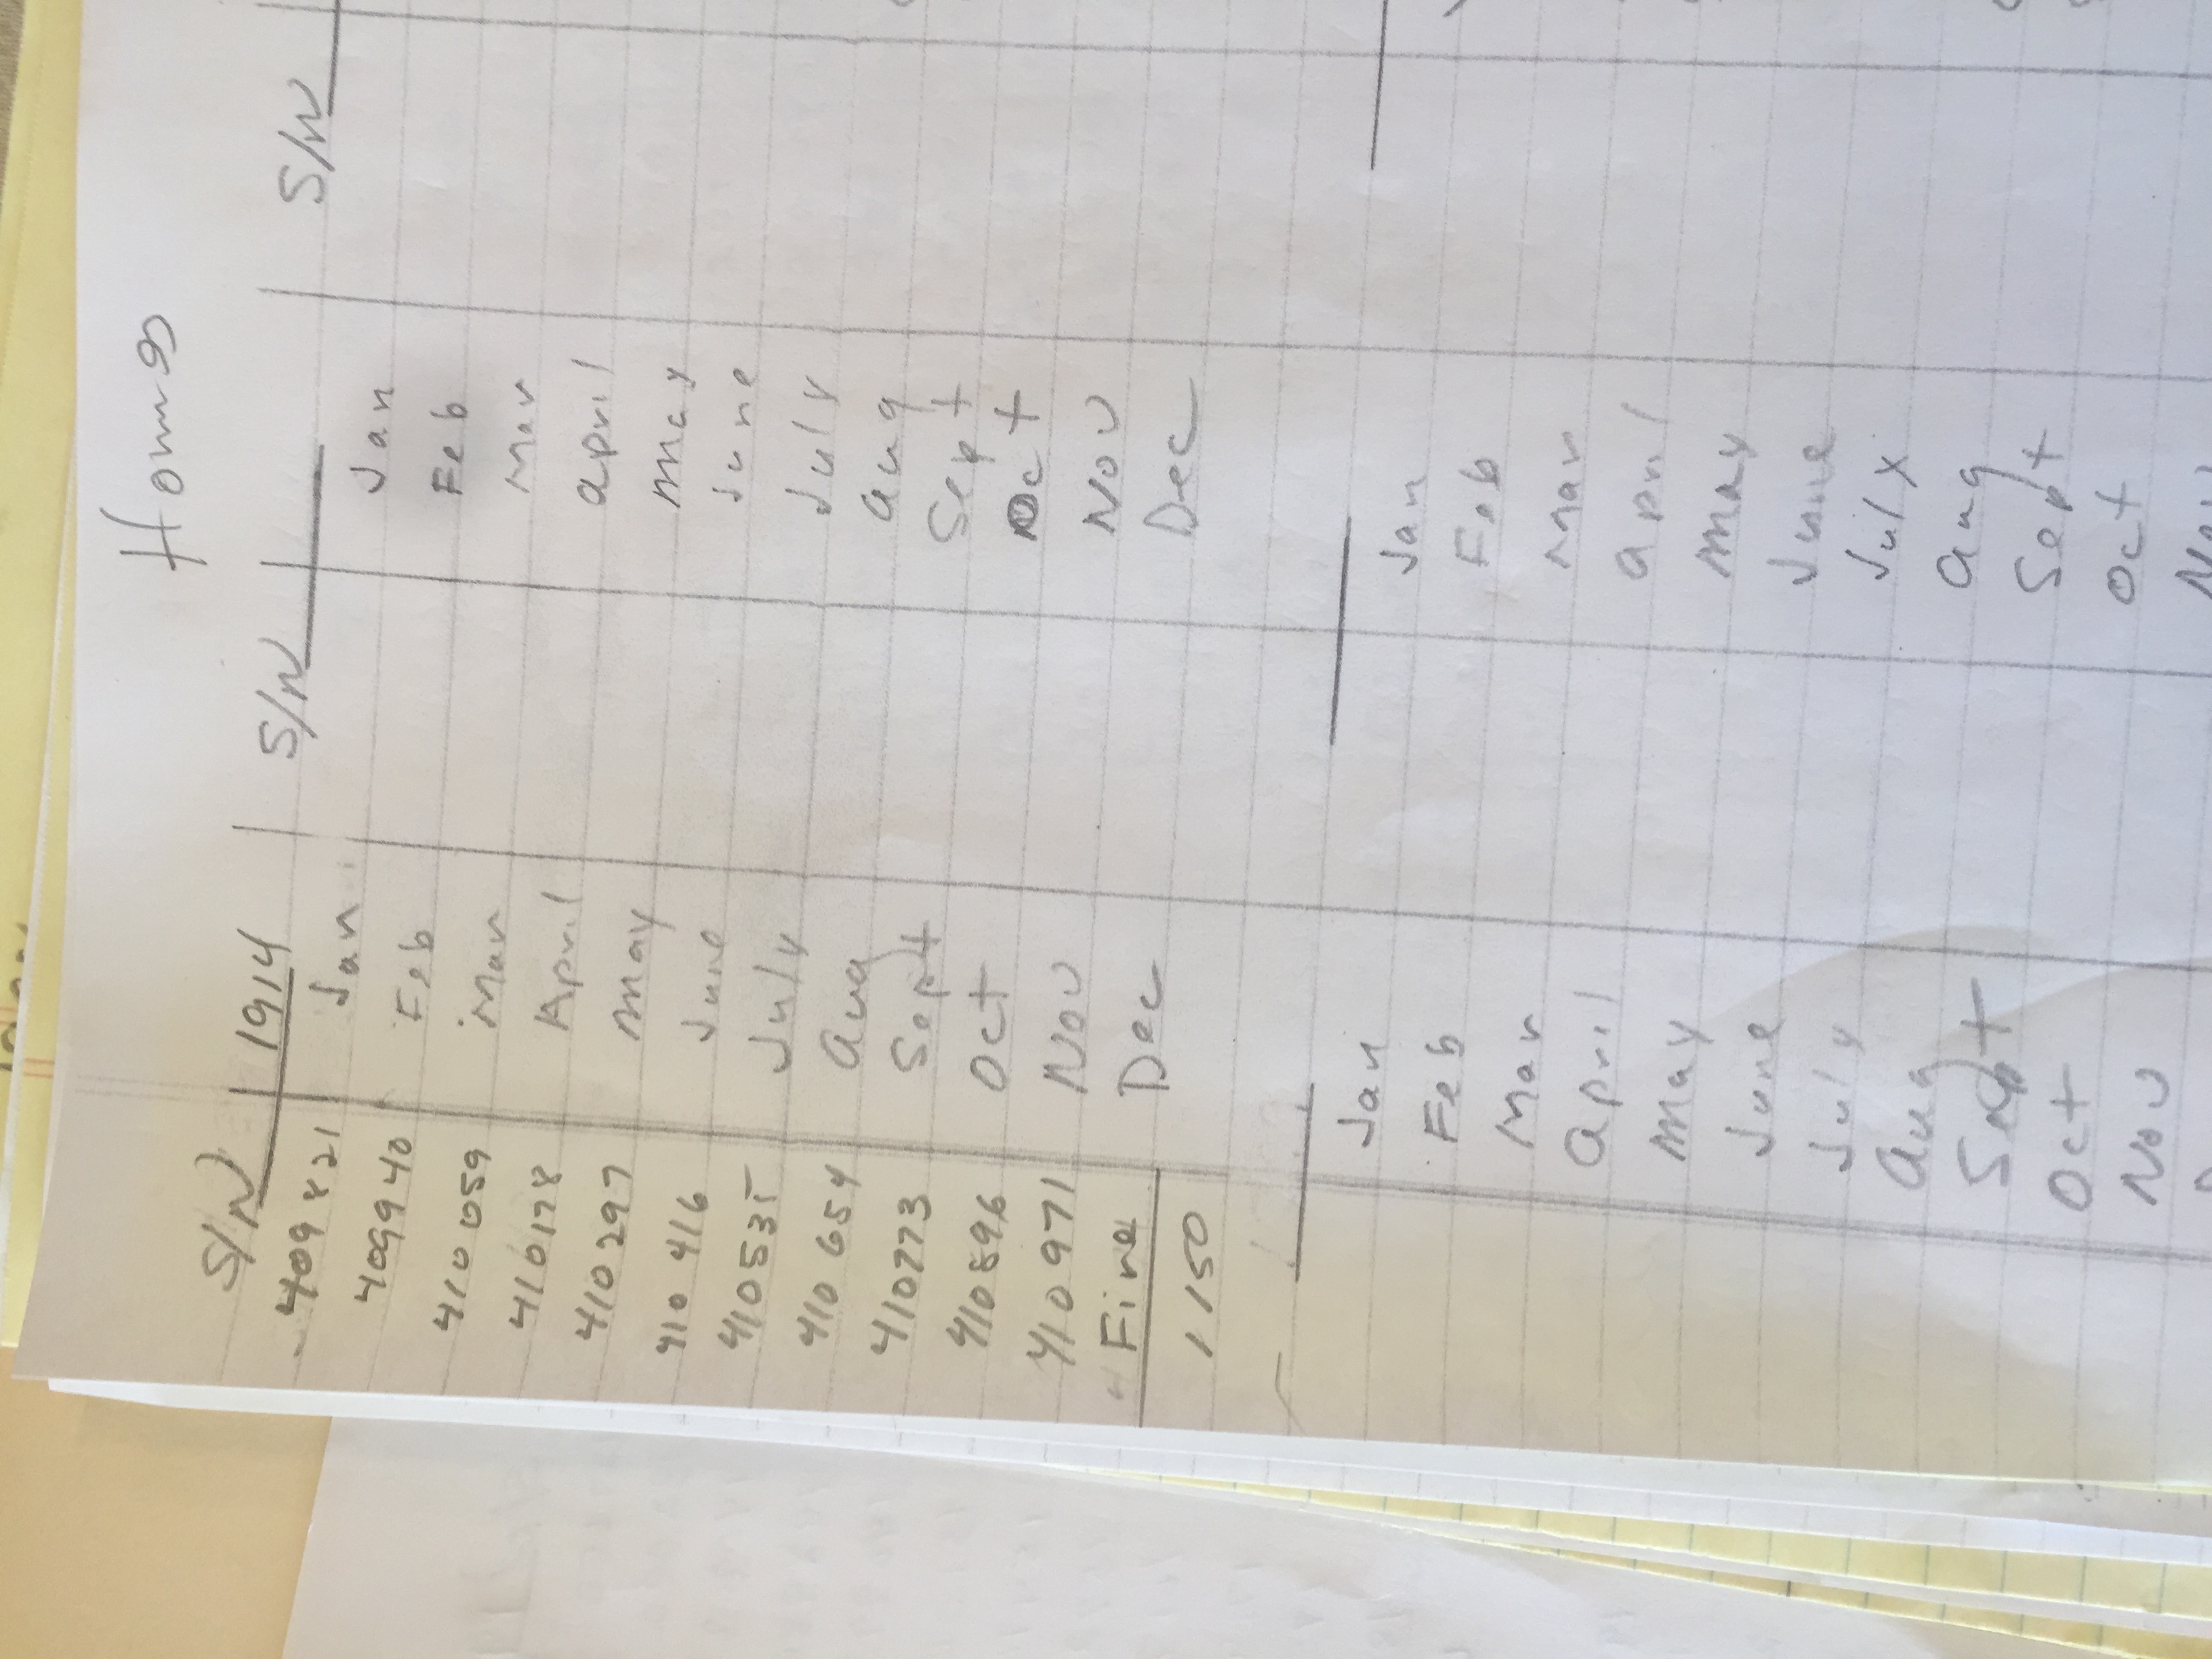 S/N 1914 S/N S/N
409821 Jan Jan
409940 Feb Feb
410059 Mar Mar
410178 April april
410297 may may
410416 June June
410535 July July
410654 aug aug
410773 Sept Sept
410896 Oct Oct
410971 Nov Nov
Fine Dec Dec
1150
Jan Jan
Feb Feb
Mar Mar
april april
may may
June June
July July
aug aug
Sept Sept
Oct Oct
Nov